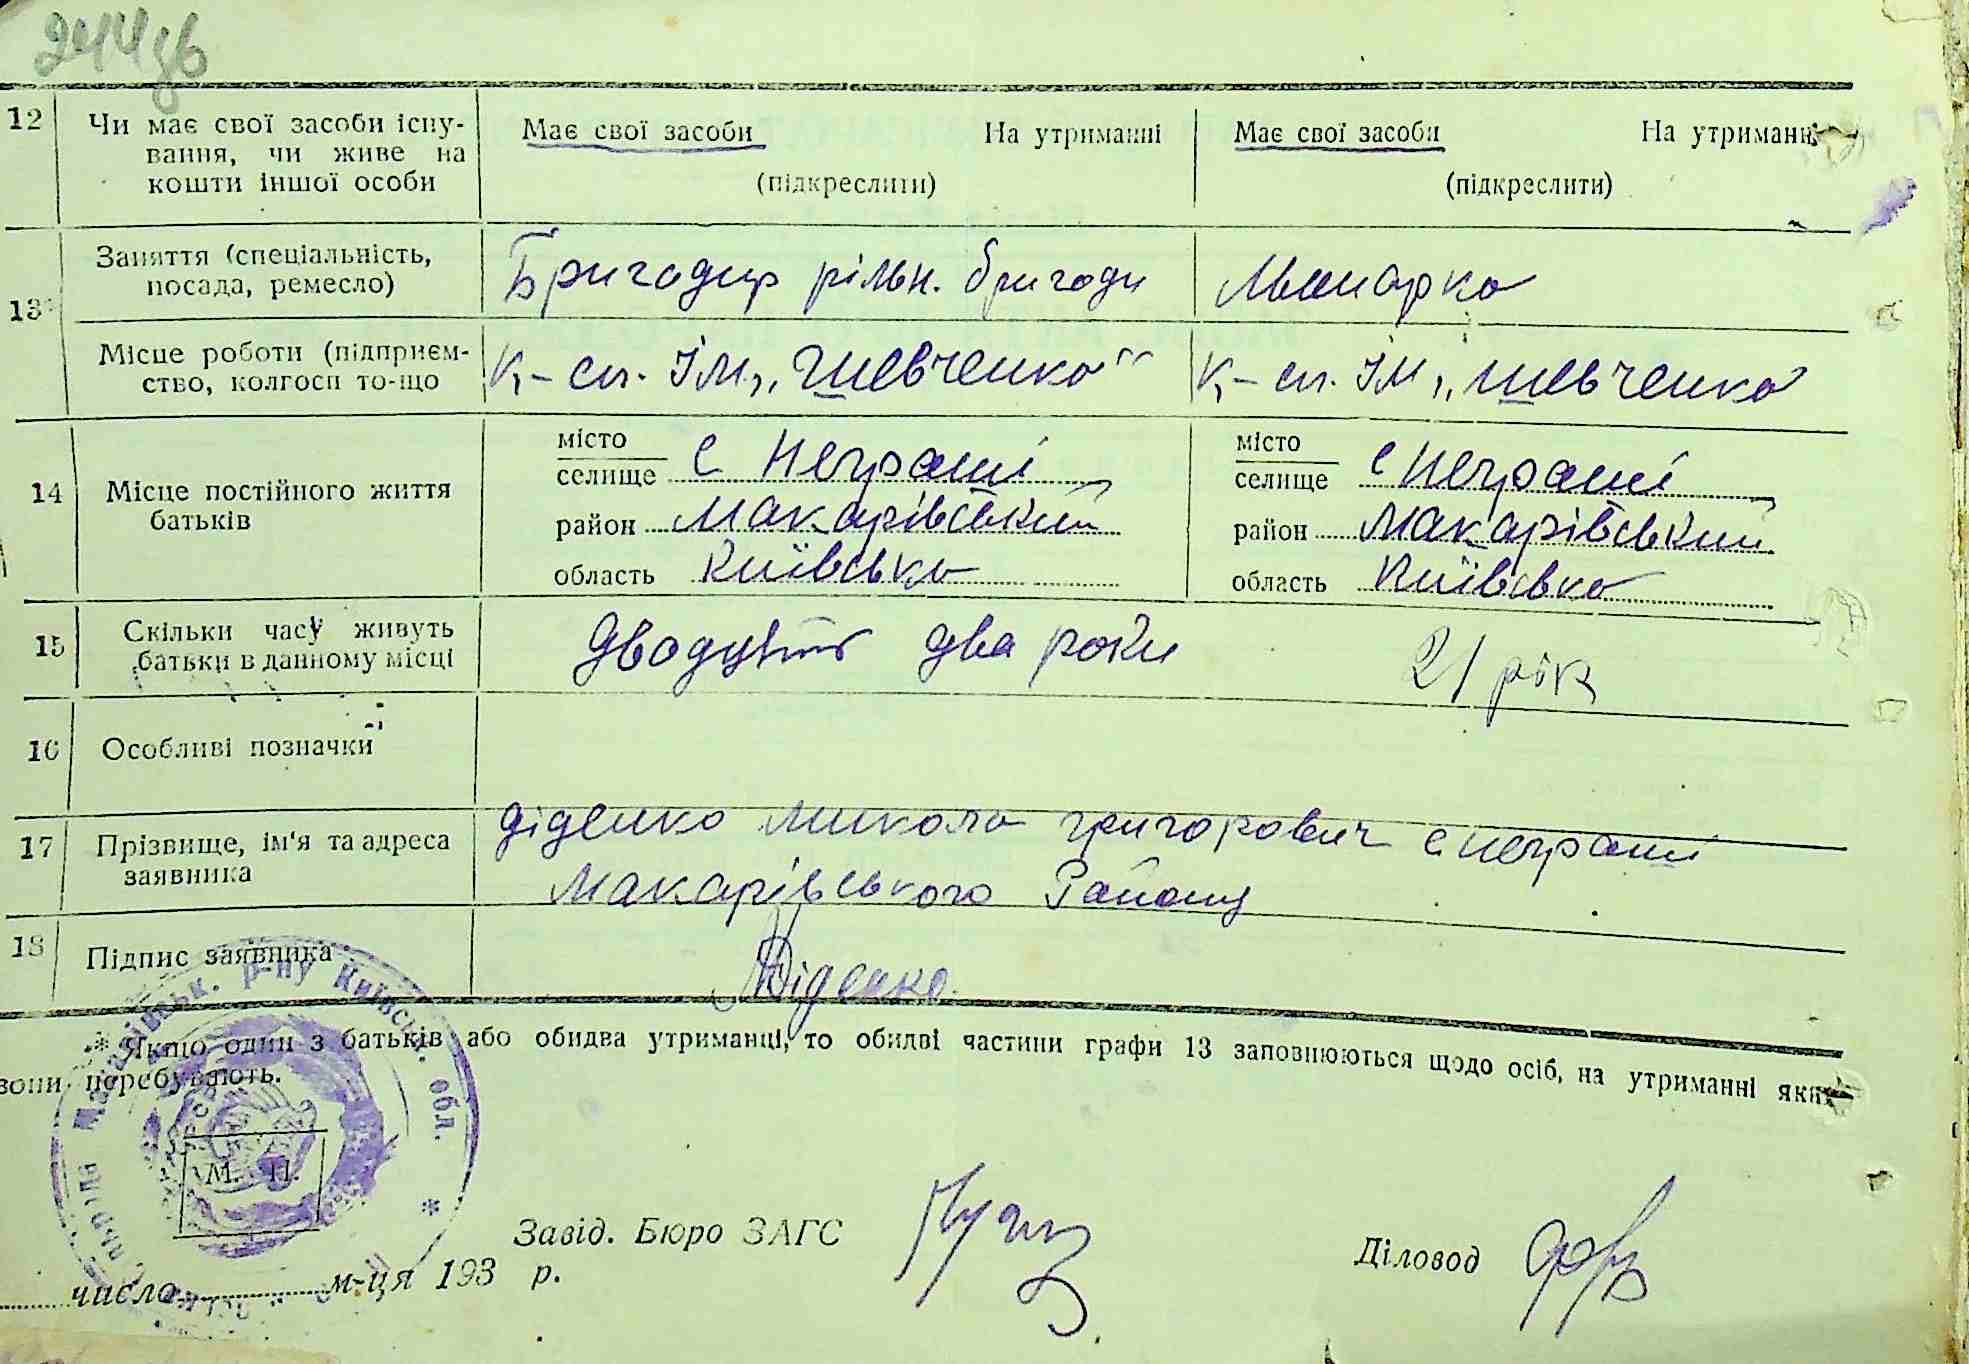 244зв
12 Чи має свої засоби існу-
вання, чи живе на
кошти іншої особи
Має свої засоби На утриманні
(підкреслити)
Має свої засоби На утриманні
(підкреслити)
13* Заняття (спеціальність,
посада, ремесло)
Бригадир рільн. бригади
Ланкарка
Місце роботи (підприєм-
ство, колгосп то-що
К-сп. Ім. „Шевченка“
К-сп. Ім. „Шевченка
14 Місце постійного життя
батьків
місто
селище с Неграші
район Макарівський
область Київська
місто
селище с Неграші
район Макарівський
область Київська
15 Скільки часу живуть
батьки в данному місці
Двадцять два роки
21 рік
16 Особливі позначки
17 Прізвище, ім'я та адреса
заявника
Діденко Микола Григорович с Неграші
Макарівського Району
18 Підпис заявника
Діденко.
* Якщо один з батьків або обидва утриманці, то обидві частини графи 13 заповнюються щодо осіб, на утриманні яких
вони перебувають.
Макарівськ. р-ну Київськ. обл. *
М. П.
Завід. Бюро ЗАГС
Діловод
число м-ця 193 р.